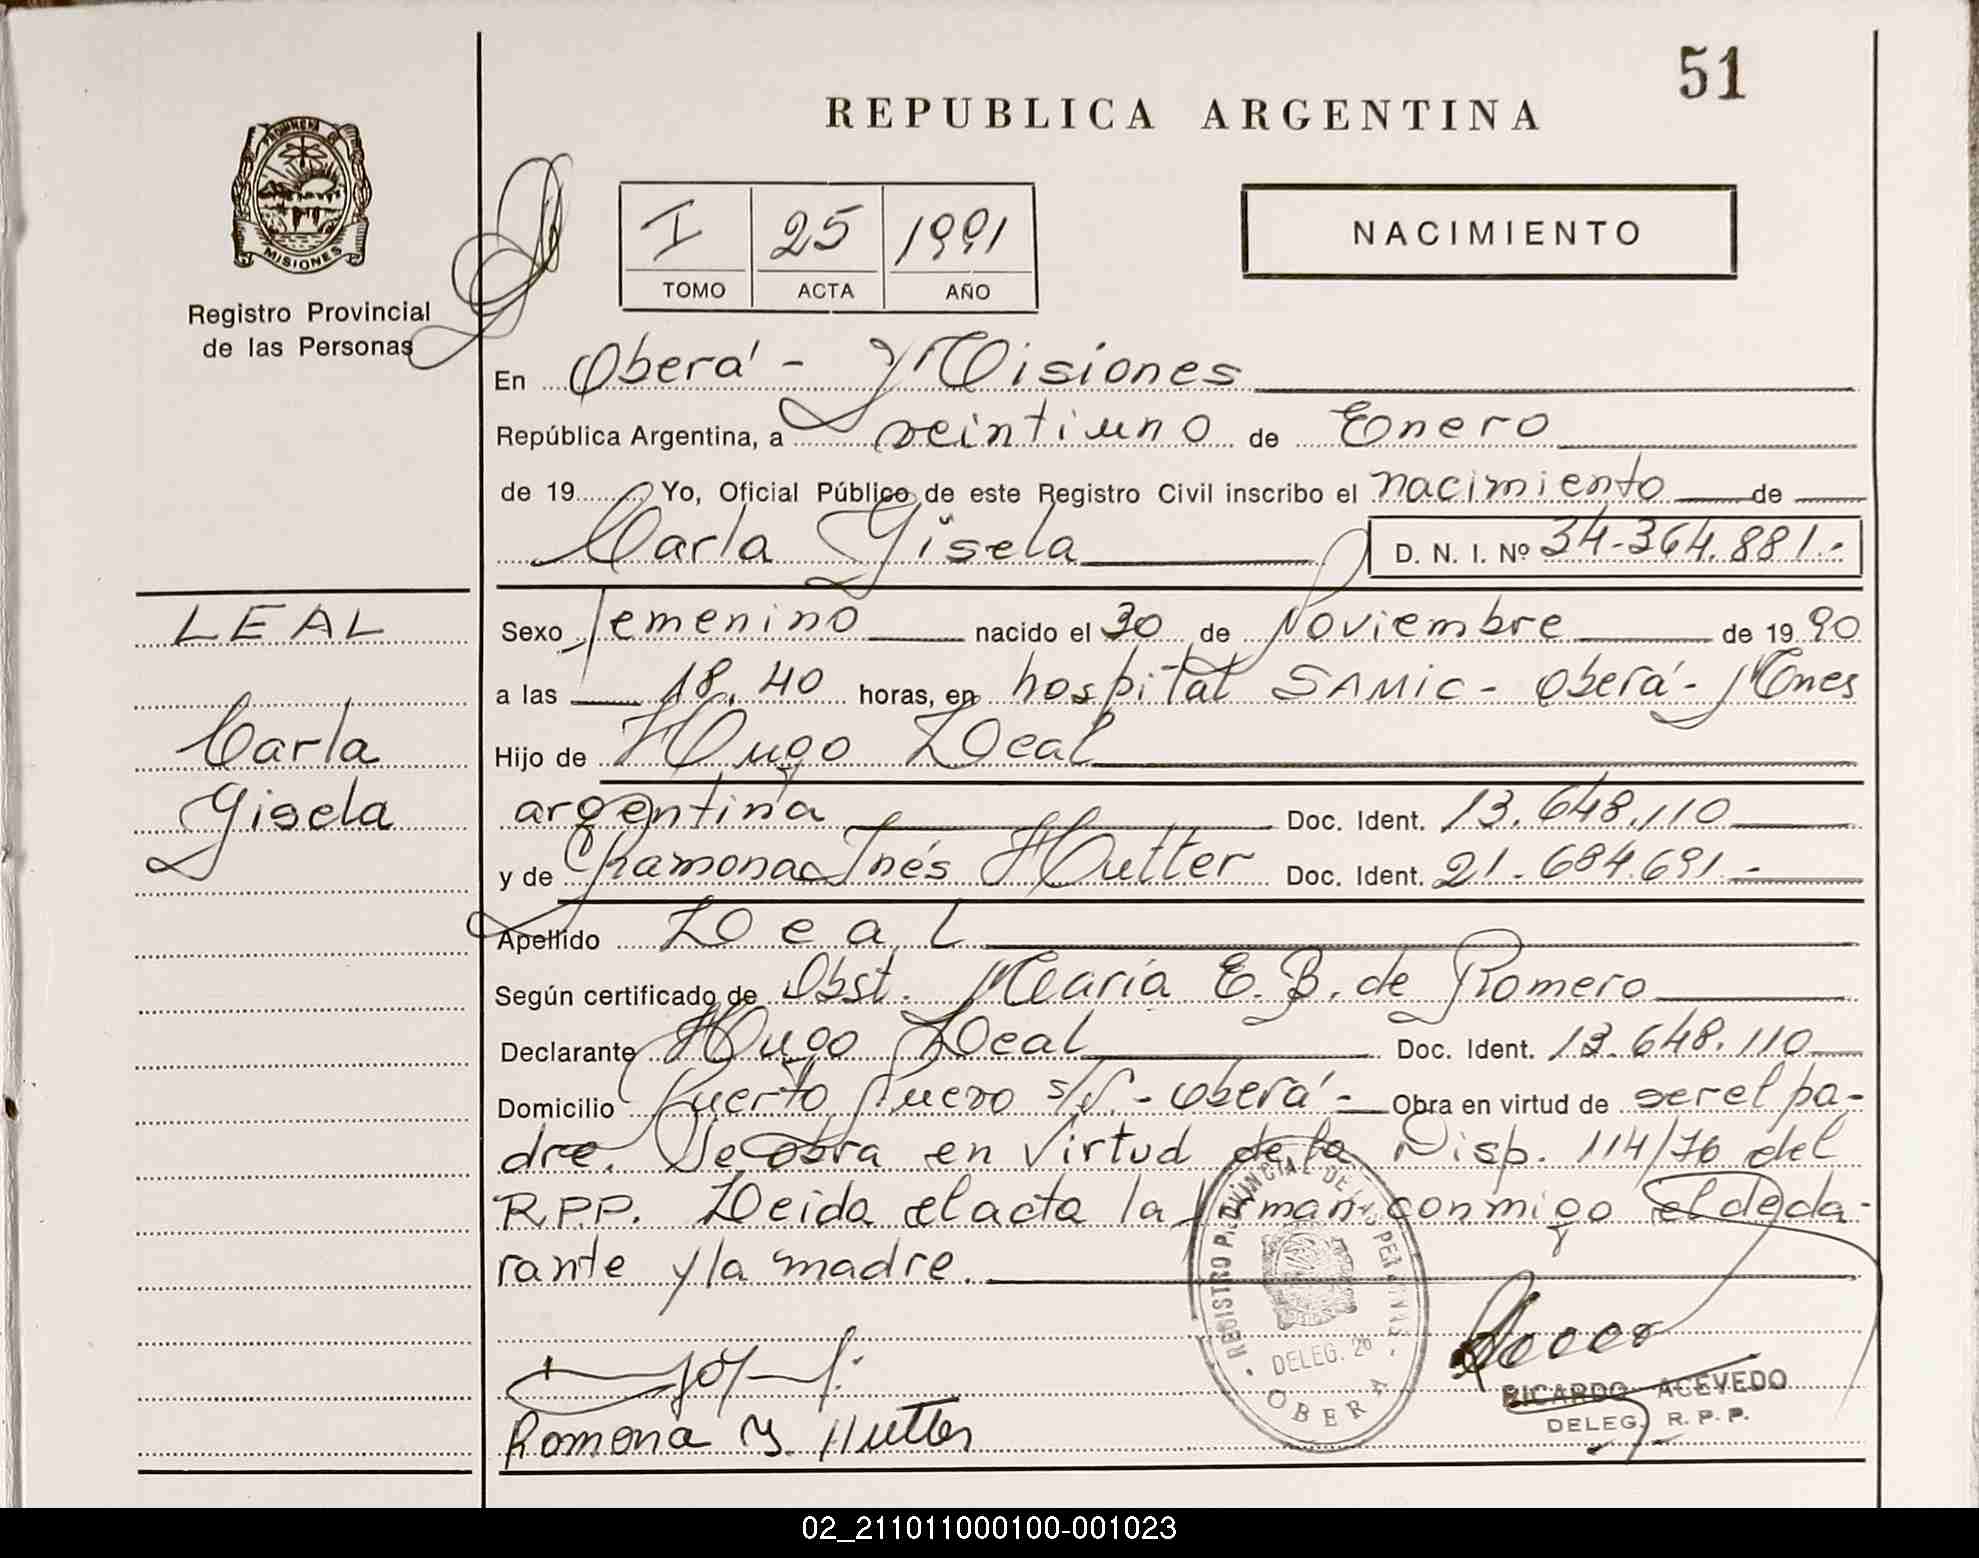 51
REPUBLICA ARGENTINA
PROVINCIA DE
MISIONES
Registro Provincial
de las Personas
I 25 1991
TOMO ACTA AÑO
NACIMIENTO
En Oberá - Misiones
República Argentina, a veintiuno de Enero
de 19 Yo, Oficial Público de este Registro Civil inscribo el nacimiento de
Carla Gisela D. N. I. Nº 34-364.881.-
LEAL
Carla
Gisela
Sexo femenino nacido el 30 de Noviembre de 19 90
a las 18.40 horas, en hospital SAMIC - Oberá - Mnes
Hijo de Hugo Leal
argentina Doc. Ident. 13.648.110
y de Ramona Inés Hutter Doc. Ident. 21.684.691.-
Apellido Leal
Según certificado de Obst. María E. B. de Romero
Declarante Hugo Leal Doc. Ident. 13.648.110
Domicilio Puerto Nuevo s/N - Oberá - Obra en virtud de ser el pa-
dre. Se obra en virtud de la Disp. 114/76 del
R.P.P. Leida el acta la firman conmigo el decla-
rante y la madre.
REGISTRO PROVINCIAL DE LAS PERSONAS
DELEG. 26
OBERA
Ramona Y. Hutter
RICARDO ACEVEDO
DELEG. R. P. P.
02_211011000100-001023